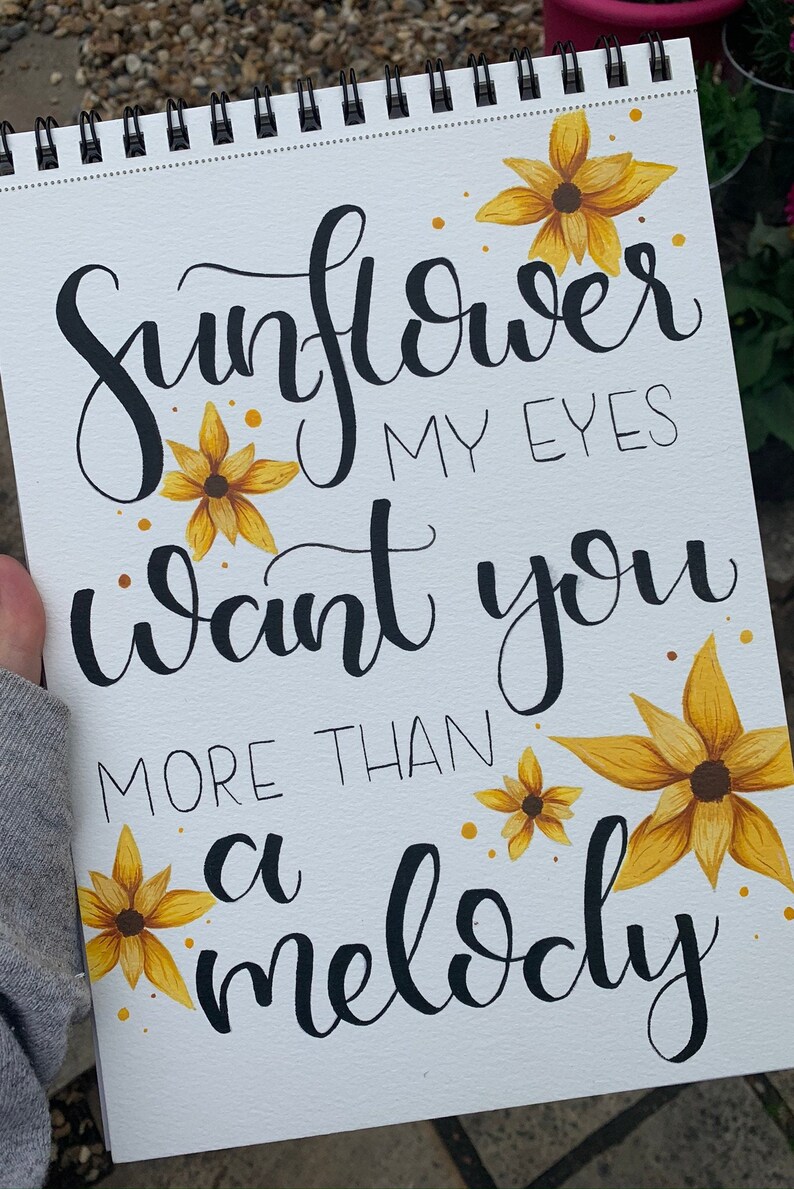 Sunflower
MY EYES
want you
MORE THAN
a
melody